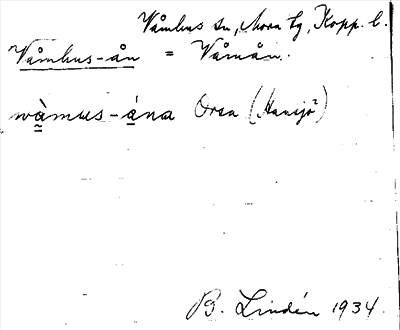 Våmhus sn, Mora tg, Kopp. l.
Våmhus-ån = Våmån.
wàmus-ána Orsa (Hansjö)
B. Lindén 1934.